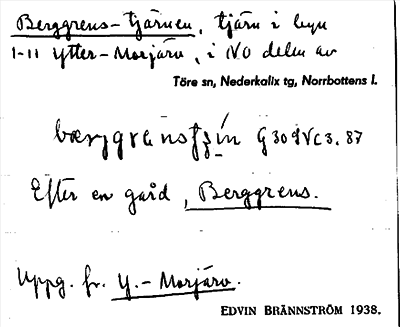 Berggrens-tjärnen, tjärn i byn
1-11 Ytter-Morjärv, i NO delen av
Töre sn, Nederkalix tg, Norrbottens l.
G 30 9 V c 3. 87
Efter en gård, Berggrens.
Uppg. fr. Y.-Morjärv.
EDVIN BRÄNNSTRÖM 1938.